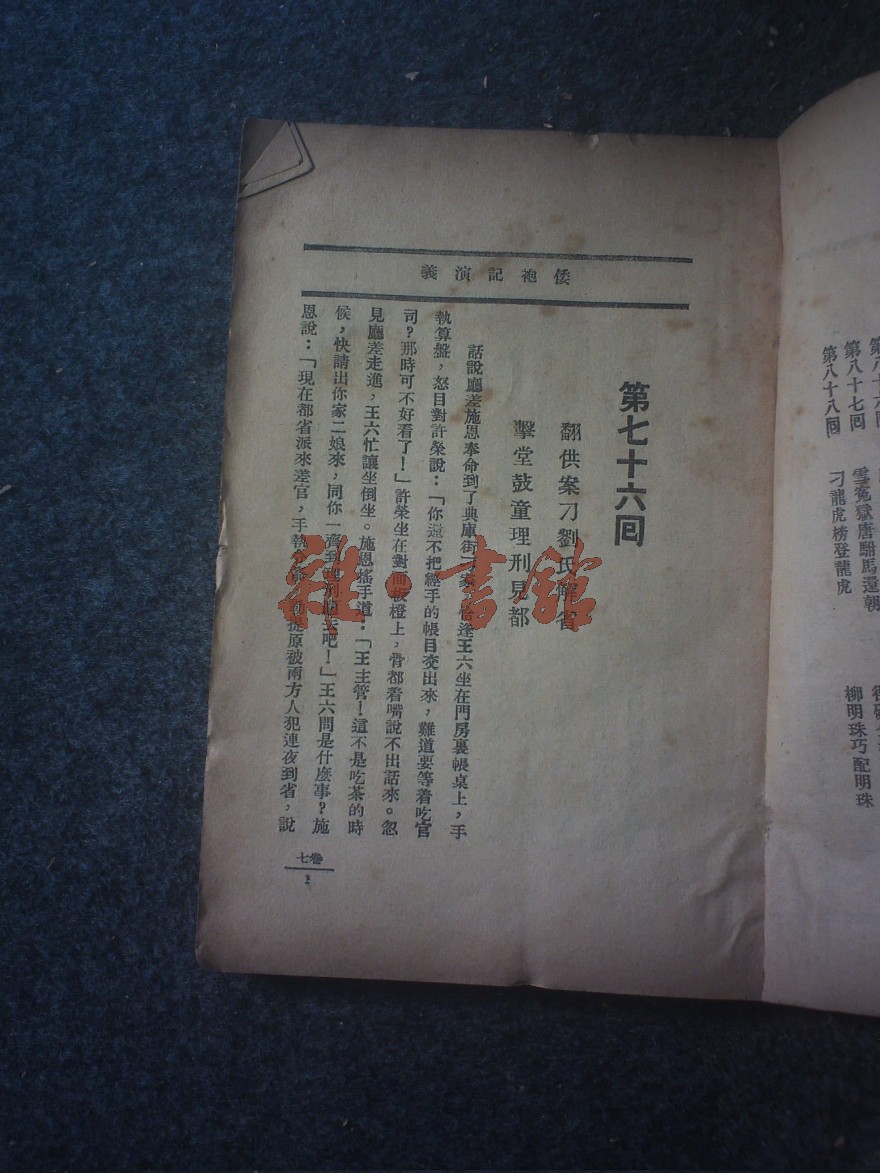 第八十七回　雪冤獄唐駙馬還朝
第八十八回　刁龍虎榜登龍虎
柳明珠巧配明珠
倭袍記演義
第七十六回
翻供案刁劉氏解省
擊堂鼓童理刑見都
話說廳差施恩奉命到了典庫街刁家，恰逢王六坐在門房裏帳桌上，手
執算盤，怒目對許榮說：「你還不把經手的帳目交出來，難道要等着吃官
司？那時可不好看了！」許榮坐在對面板櫈上，骨都着嘴說不出話來。忽
見廳差走進，王六忙讓坐倒坐。施恩搖手道：「王主管！這不是吃茶的時
候，快請出你家二娘來，同你一齊到
吧！」王六問是什麼事？施
恩說：「現在都省派來差官，手執
提原被兩方人犯連夜到省，說
卷七
雜·書館